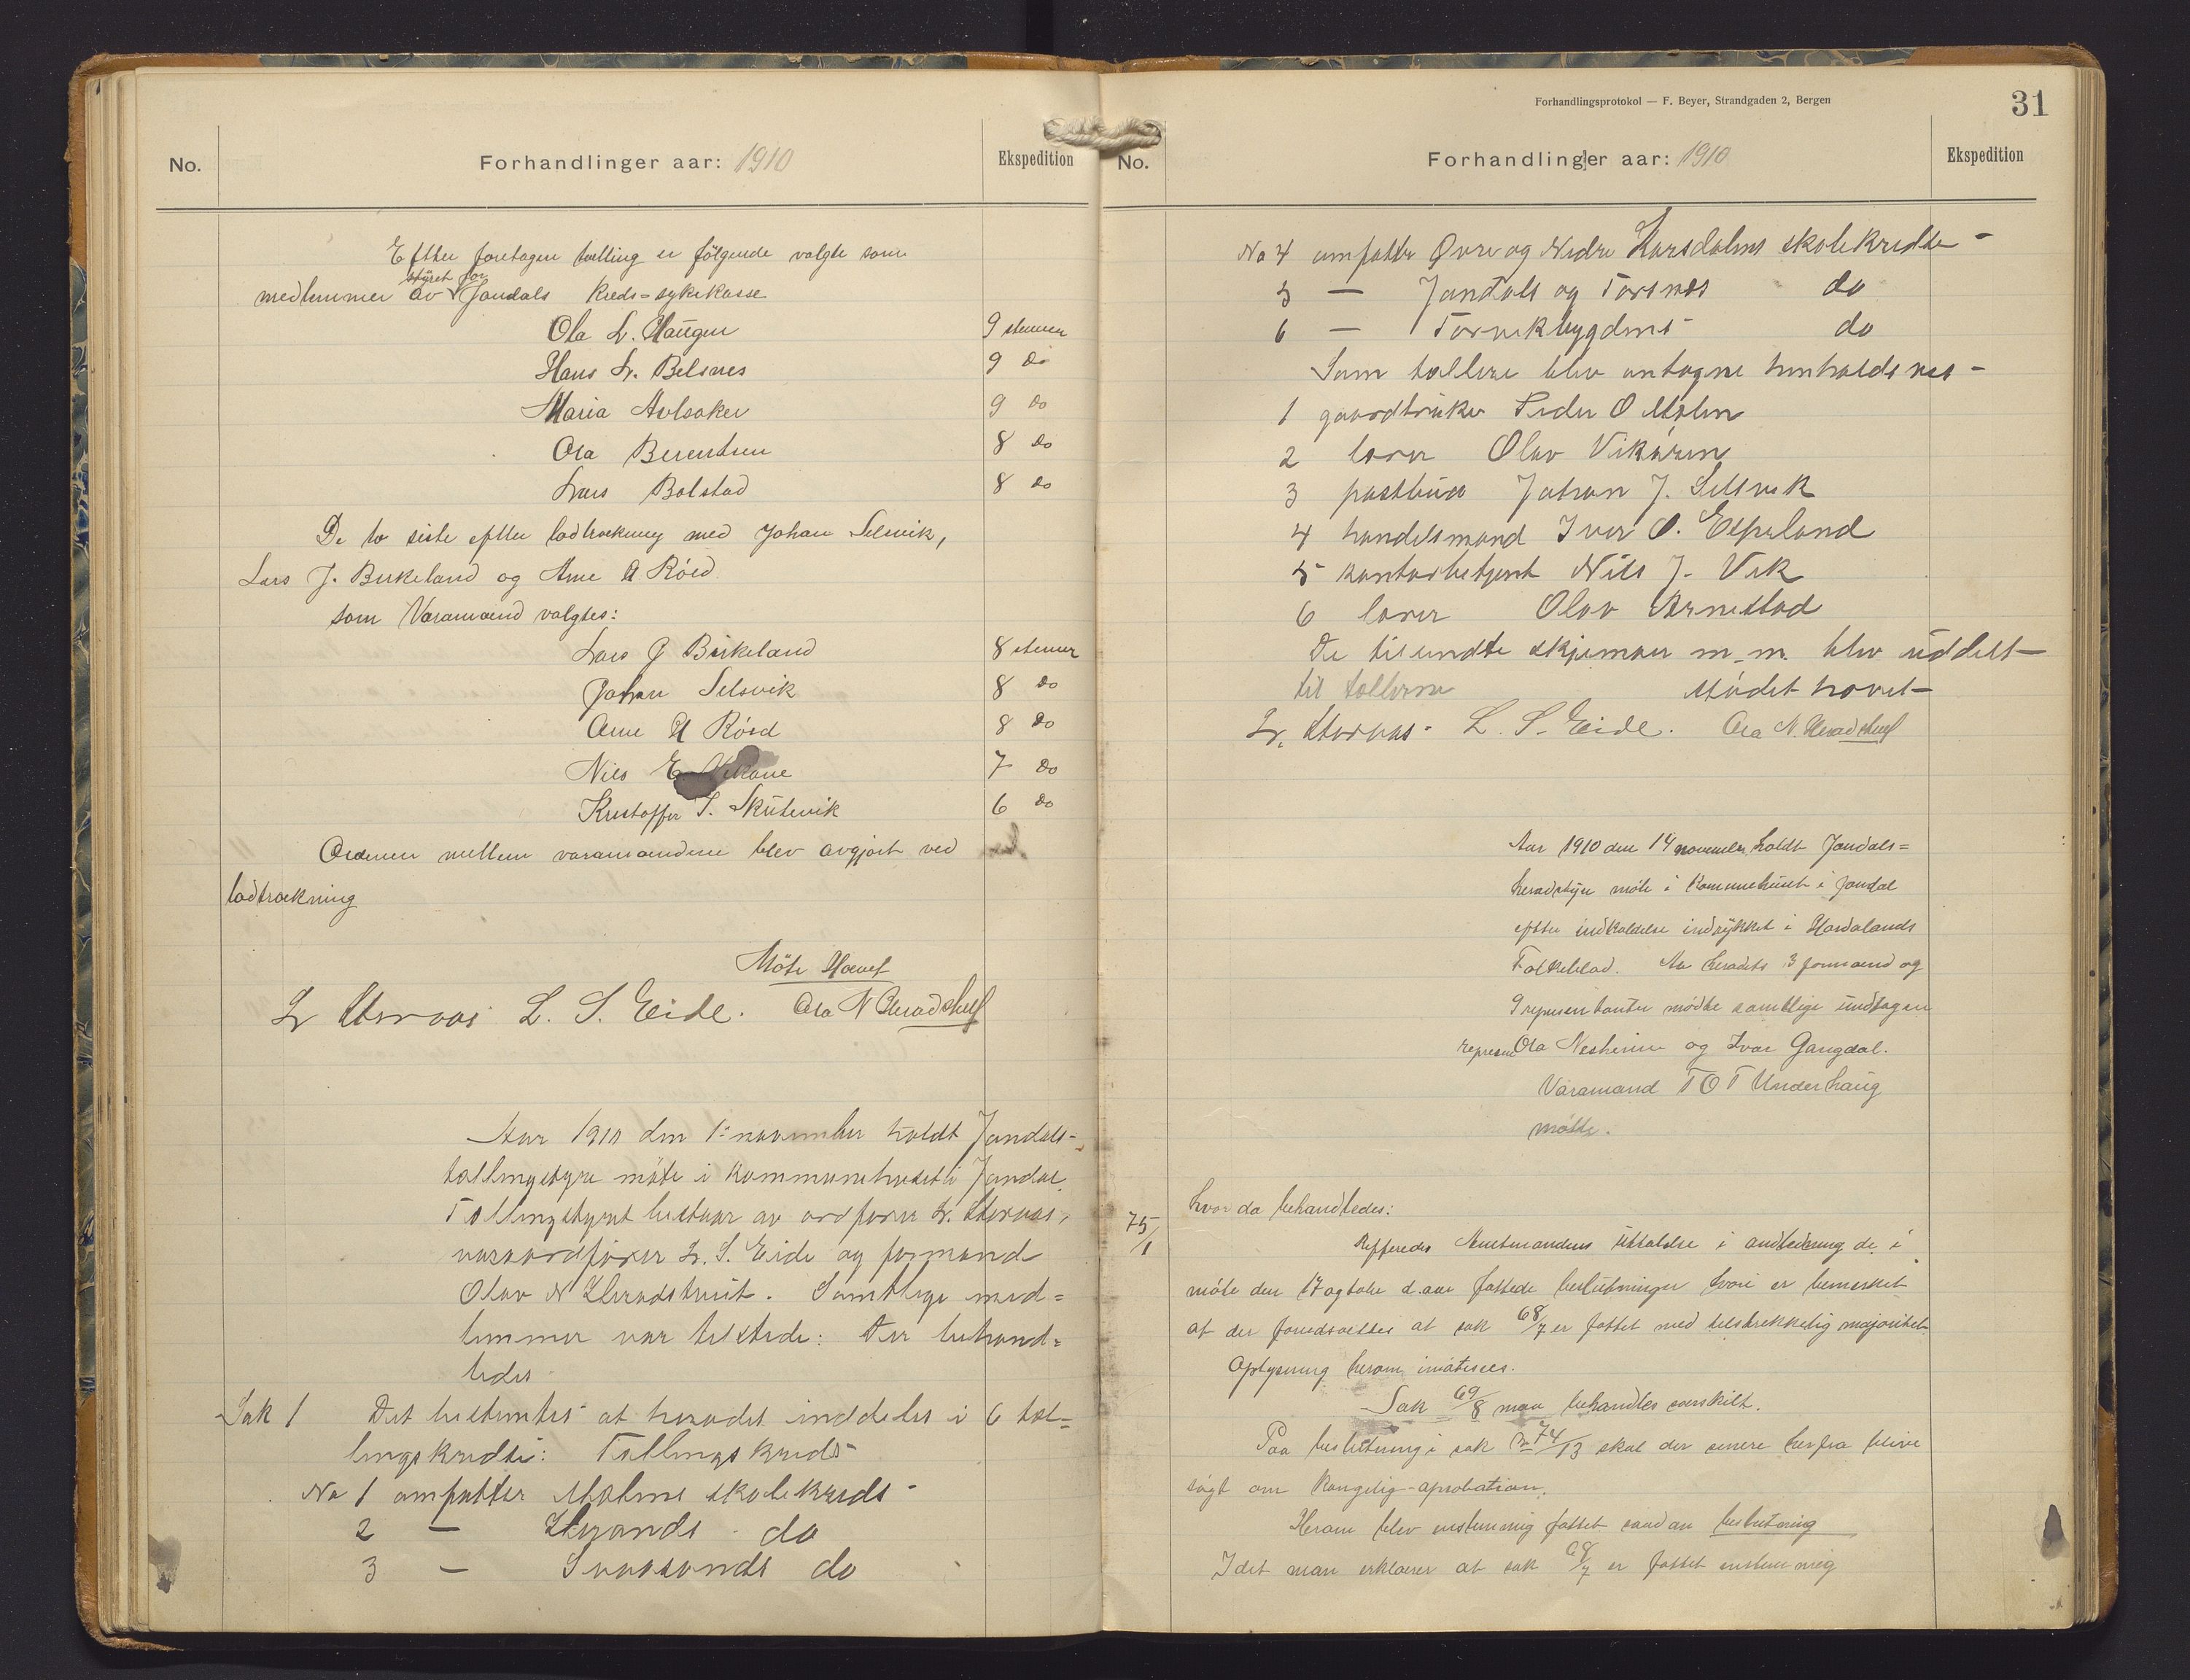 No.
Forhandlinger aar: 1910
Ekspedition
Efter foretagen tælling er følgende valgte som
medlemmer av styret for Jondals kreds=sykekasse
Ola L. Haugen 9 stemmer
Hans L. Belsnes 9 do
Maria Aolsaker 9 do
Ola Berentsen 8 do
Lars Bolstad 8 do
De to siste efter lodtrækning med Johan Selsvik,
Lars J. Birkeland og Arne A Röed
som Varamænd valgtes:
Lars J Birkeland 8 stemmer
Johan Selsvik 8 do
Arne A Röed 8 do
Nils E 7 do
Kristoffer S. Skutevik 6 do
Ordenen mellem varamændene blev avgjort ved
lodtrækning
Möte Hævet
L. S. Eide. Ola N Heradstveit
Aar 1910 den 1ste november holdt Jondals-
tællingstyre möte i kommunehuset i Jondal.
Tællingstyret bestaar av ordförer Lr. Storaas,
varaordförer L. S. Eide og formand
Olav N Heradstveit. Samtlige med=
lemmer var tilstede: Der behand=
ledes
Sak 1 Det bestemtes at heradet inddeles i 6 tæl=
lingskredse: Tællingskreds
No 1 omfatter Molme skolekreds
2 — Strands do
3 — Svaasands do
Forhandlingsprotokol — F. Beyer, Strandgaden 2, Bergen
31
No.
Forhandlinger aar: 1910
Ekspedition
No 4 omfatter Øvre og Nedre Korsdalens skolekredse
5 — Jondals og Torsnes do
6 — Torvikbygdens do
Som tællere blev antagne henholdsves
1 gaardbruker Peder O Molm
2 lærer Olav Vikören
3 postbud Johan J. Selsvik
4 handelsmand Iver O. Espeland
5 kontorbetjent Nils J. Vik
6 lærer Olav Arnestad
De tilsendte skjemaer m.m. blev uddelt
til tællerne Mødet hævet
Lr. Storaas. L. S. Eide. Ola N. Heradstveit
Aar 1910 den 14 november holdt Jondals=
heradstyre möte i Kommunehuset i Jondal
efter indkaldelse indrykket i Hordalands
Folkeblad. Av heradets 3 formænd og
9 representanter mødte samtlige undtagen
represen Ola Nesheim og Ivar Gangdal.
Varamand T O T Underhaug
mötte.
hvor da behandledes:
75/1
Refferedes Amtmandens uttalelse i anledning de i
möte den 17 oktober d. aar fattede beslutninger hvori er bemerket
at der forudsættes at sak 68/7 er fattet med tilstrækkelig majoritet
Oplysning herom imøtesees.
Sak 69/8 maa behandles særskilt.
Paa beslutning i sak No 74/13 skal der senere herfra blive
søgt om kongelig-aprobation.
Herom blev enstemmig fattet saadan beslutning
Idet man erklærer at sak 68/7 er fattet enstemmig